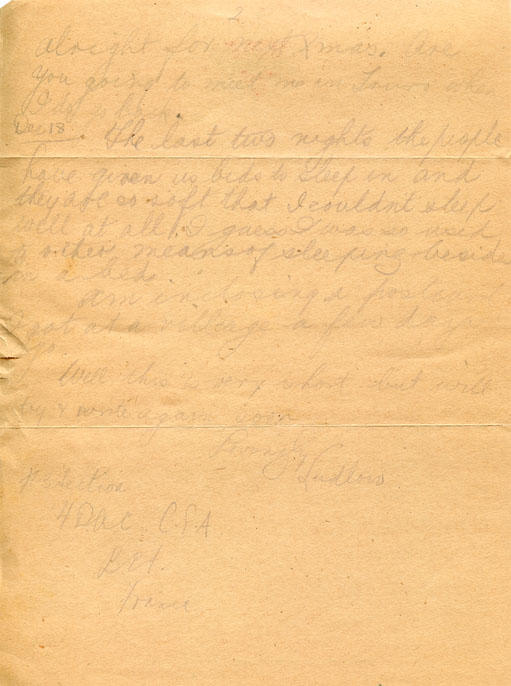 2
alright for next Xmas. Are
you going to meet me in Truro when
I go back
Dec 18. The last two nights the people
have given us beds to sleep in and
they are so soft that I couldnt sleep
well at all. I guess I was so used
to other means of sleeping beside
in a bed.
am inclosing a postcard
I got at a village a few days
Well this is very short but will
try & write again soon
Loving
Ludlow
Section
4 DAC C.F.A
B.E.F.
France